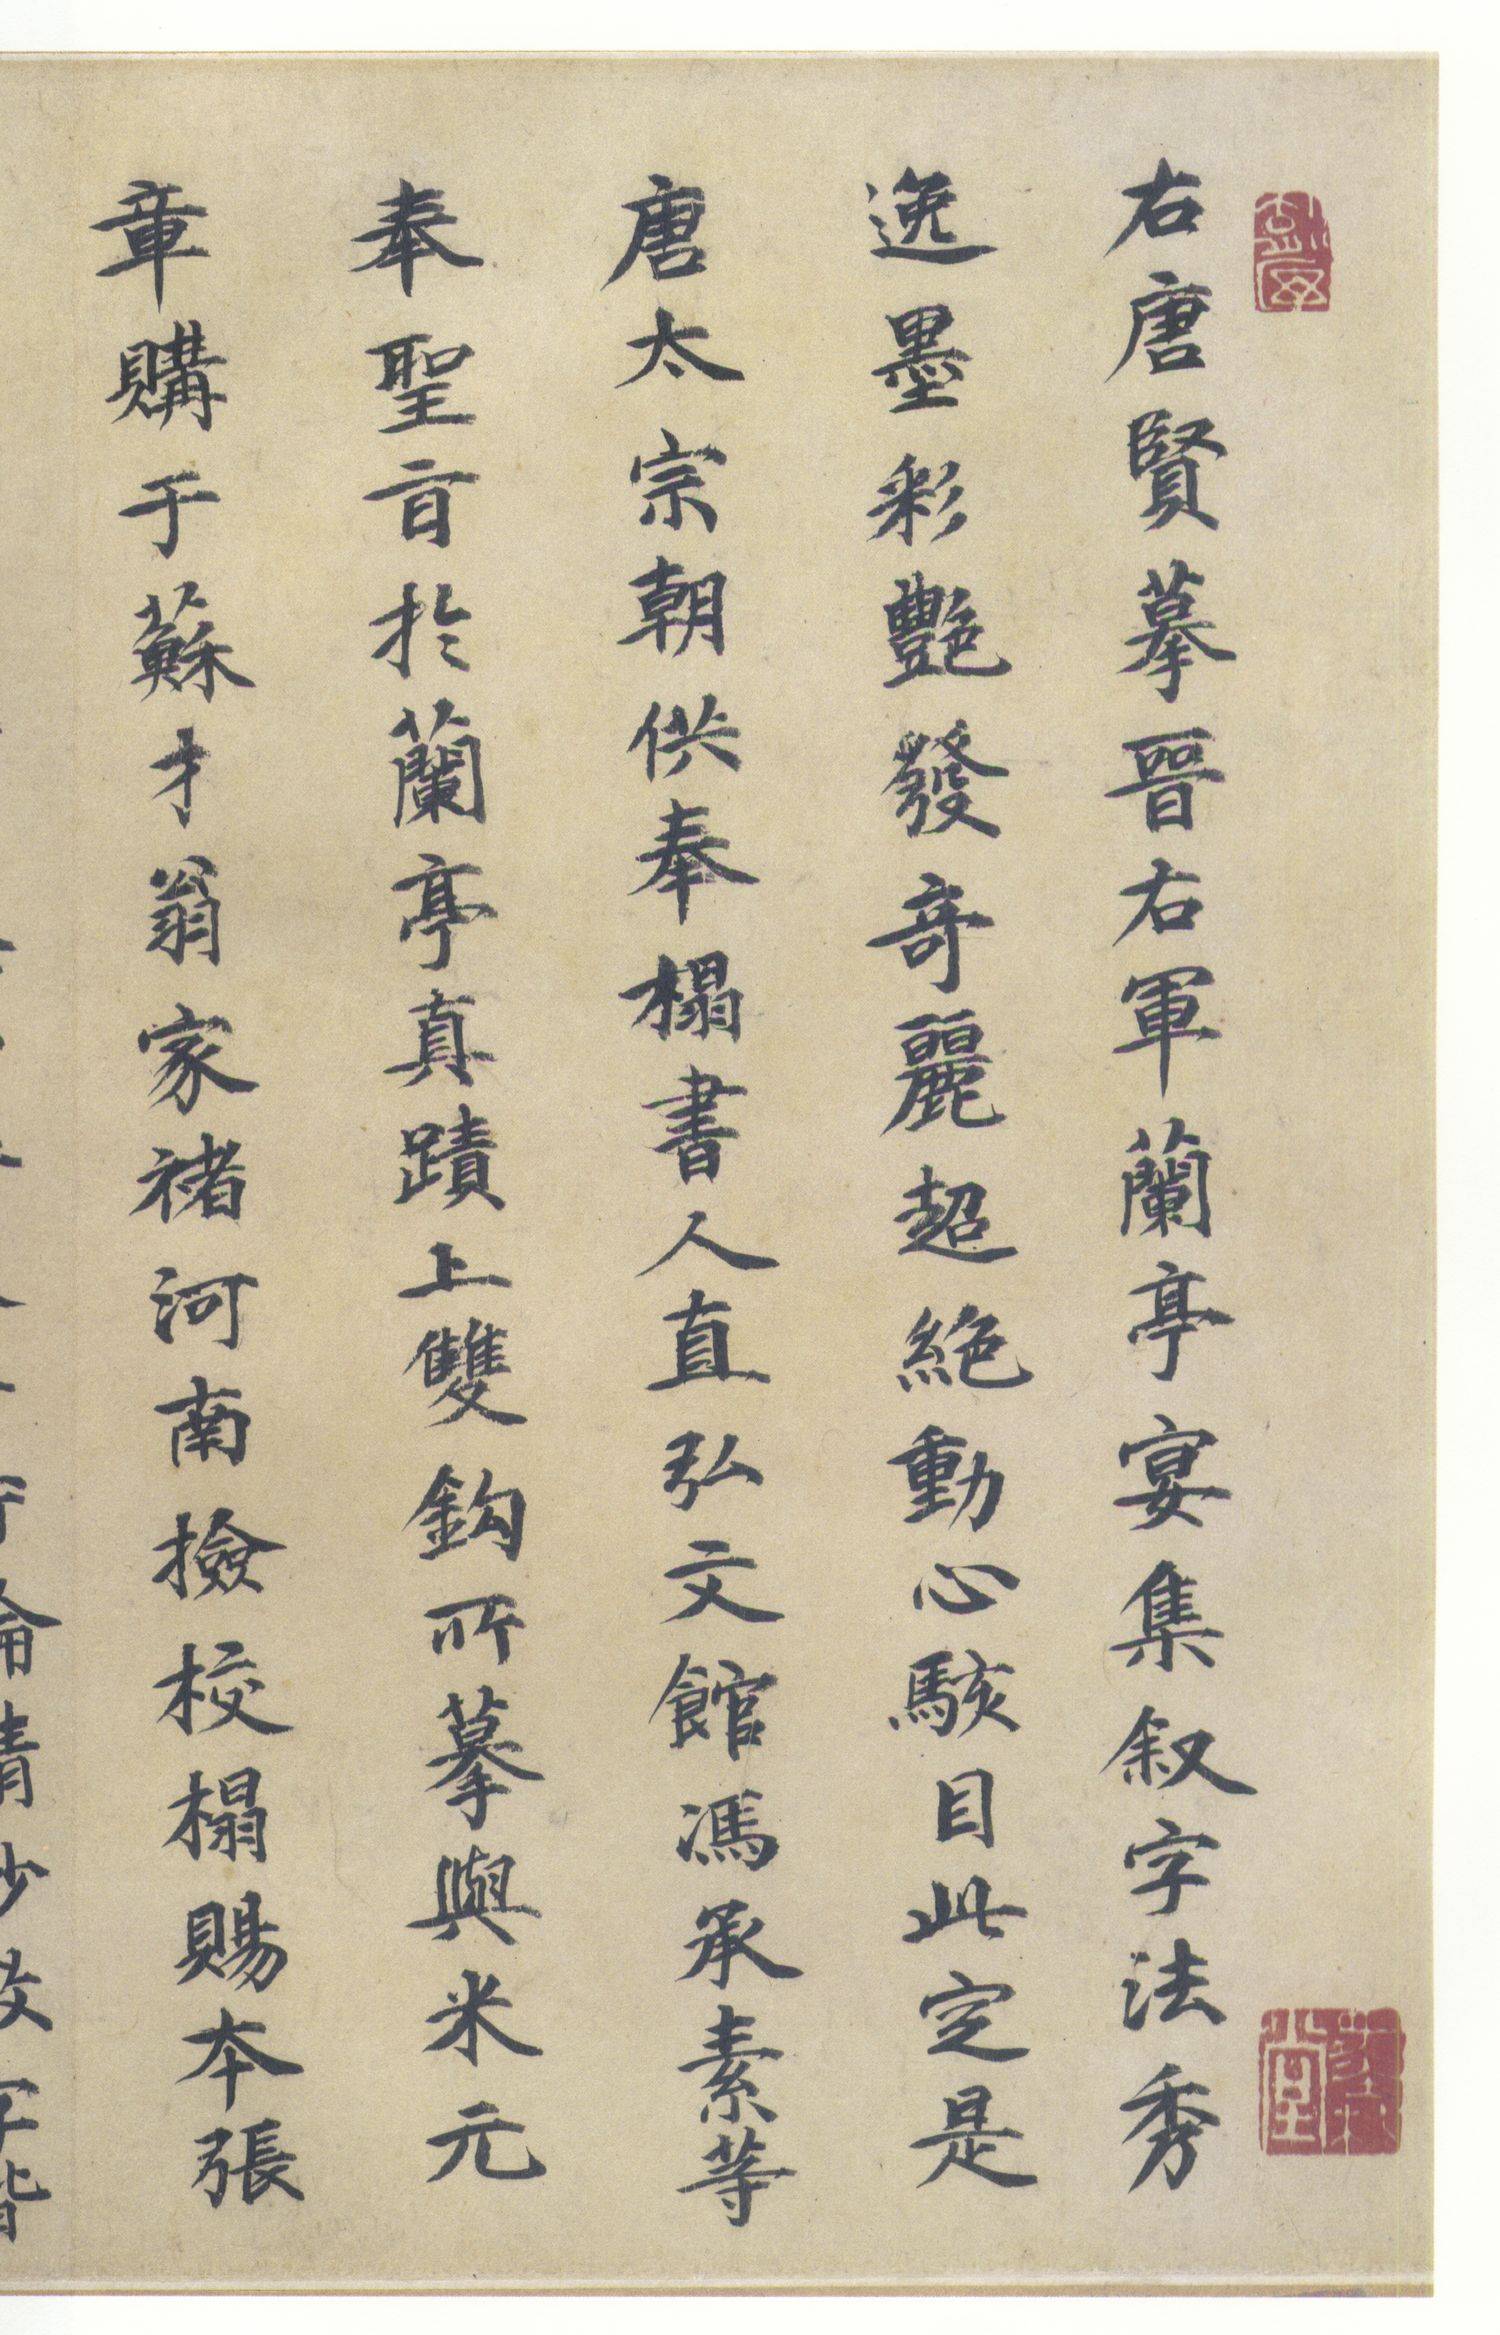 右唐賢摹晉右軍蘭亭宴集叙字法秀
逸墨彩艷發奇麗超絶動心駭目此定是
唐太宗朝供奉榻書人直弘文館馮承素等
奉聖旨於蘭亭真蹟上雙鈎所摹與米元
章購于蘇才翁家褚河南撿校榻賜本張